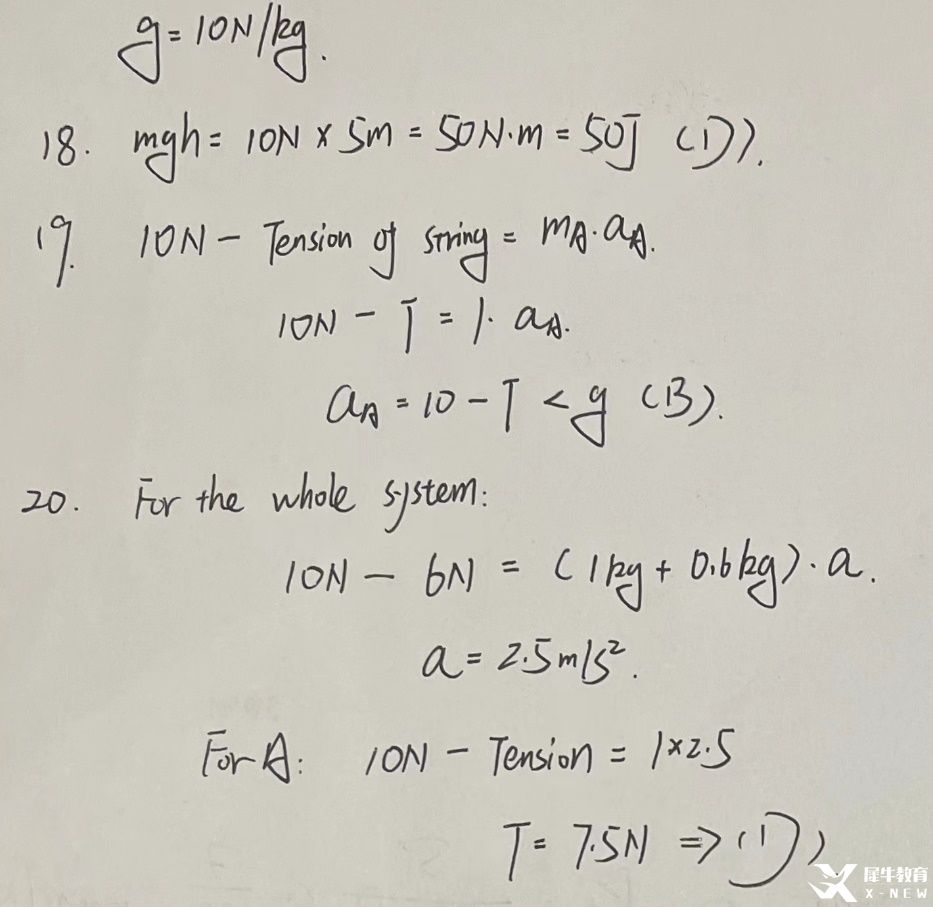 g = 10N/kg.
18. mgh = 10N × 5m = 50N·m = 50J (D).
19. 10N - Tension of string = mA·aA.
10N - T = 1·aA.
aA = 10 - T < g (B).
20. For the whole system:
10N - 6N = (1kg + 0.6kg)·a.
a = 2.5m/s².
For A: 10N - Tension = 1×2.5
T = 7.5N ⇒ (D)
犀牛教育
X-NEW